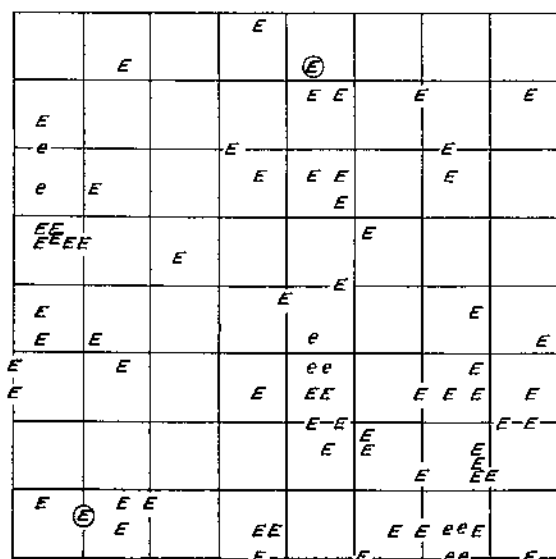 E
E E
E E E E
E
e E E
E E E E
e E
E
E E
E E E E
E
E
E E
E
E E
E E e E
E
E E e e E
E E E E E E E E
E E E E
E
E E E
E
E E E
E E E
E
E E E E E e e E
E E e e E